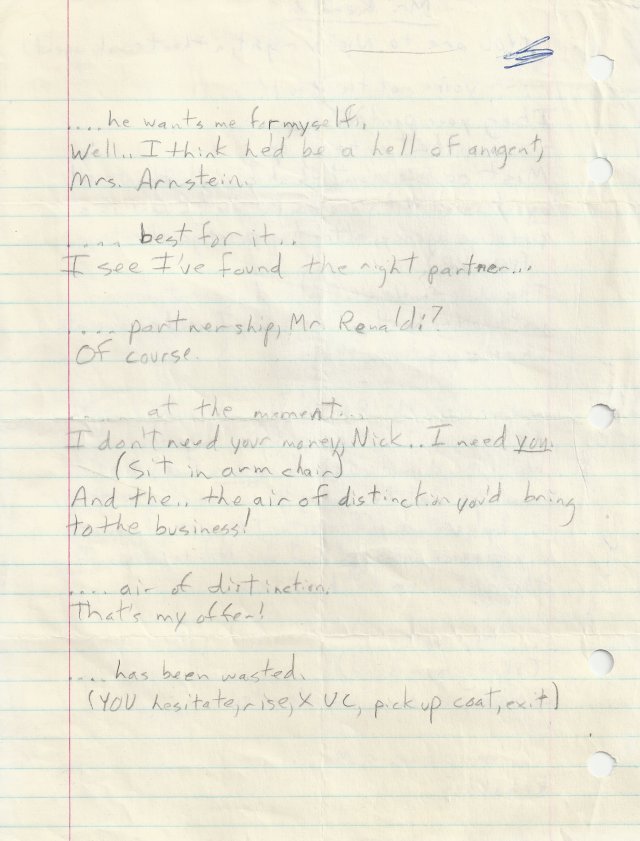 .... he wants me for myself..
Well.. I think he'd be a hell of an agent,
Mrs. Arnstein.
.... best for it..
I see I've found the right partner...
.... partnership, Mr. Renaldi?
Of course.
..... at the moment...
I don't need your money, Nick.. I need you.
(Sit in arm chair)
And the.. the air of distinction you'd bring
to the business!
.... air of distinction.
That's my offer!
.... has been wasted.
(YOU hesitate, rise, X UC, pick up coat, exit)